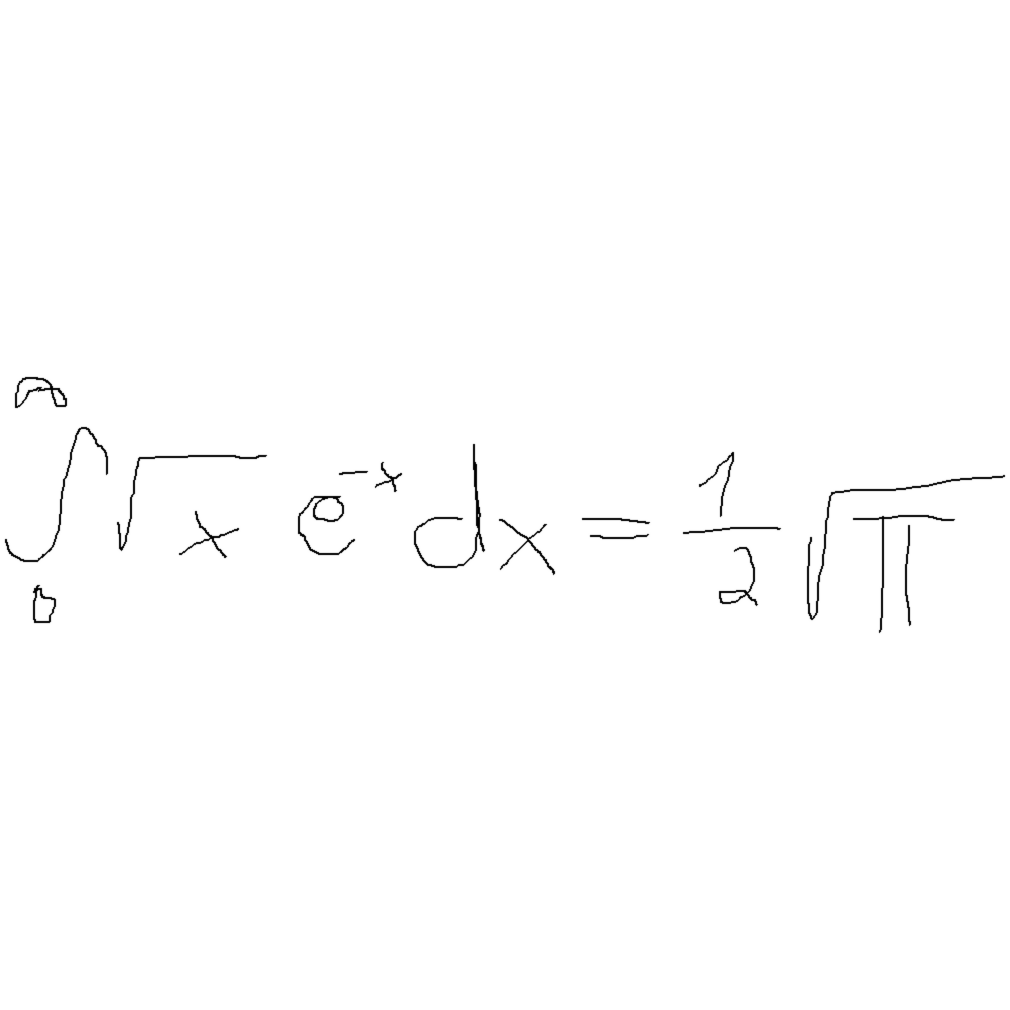 ∫₀^∞ √x e⁻ˣ dx = 1/2 √π